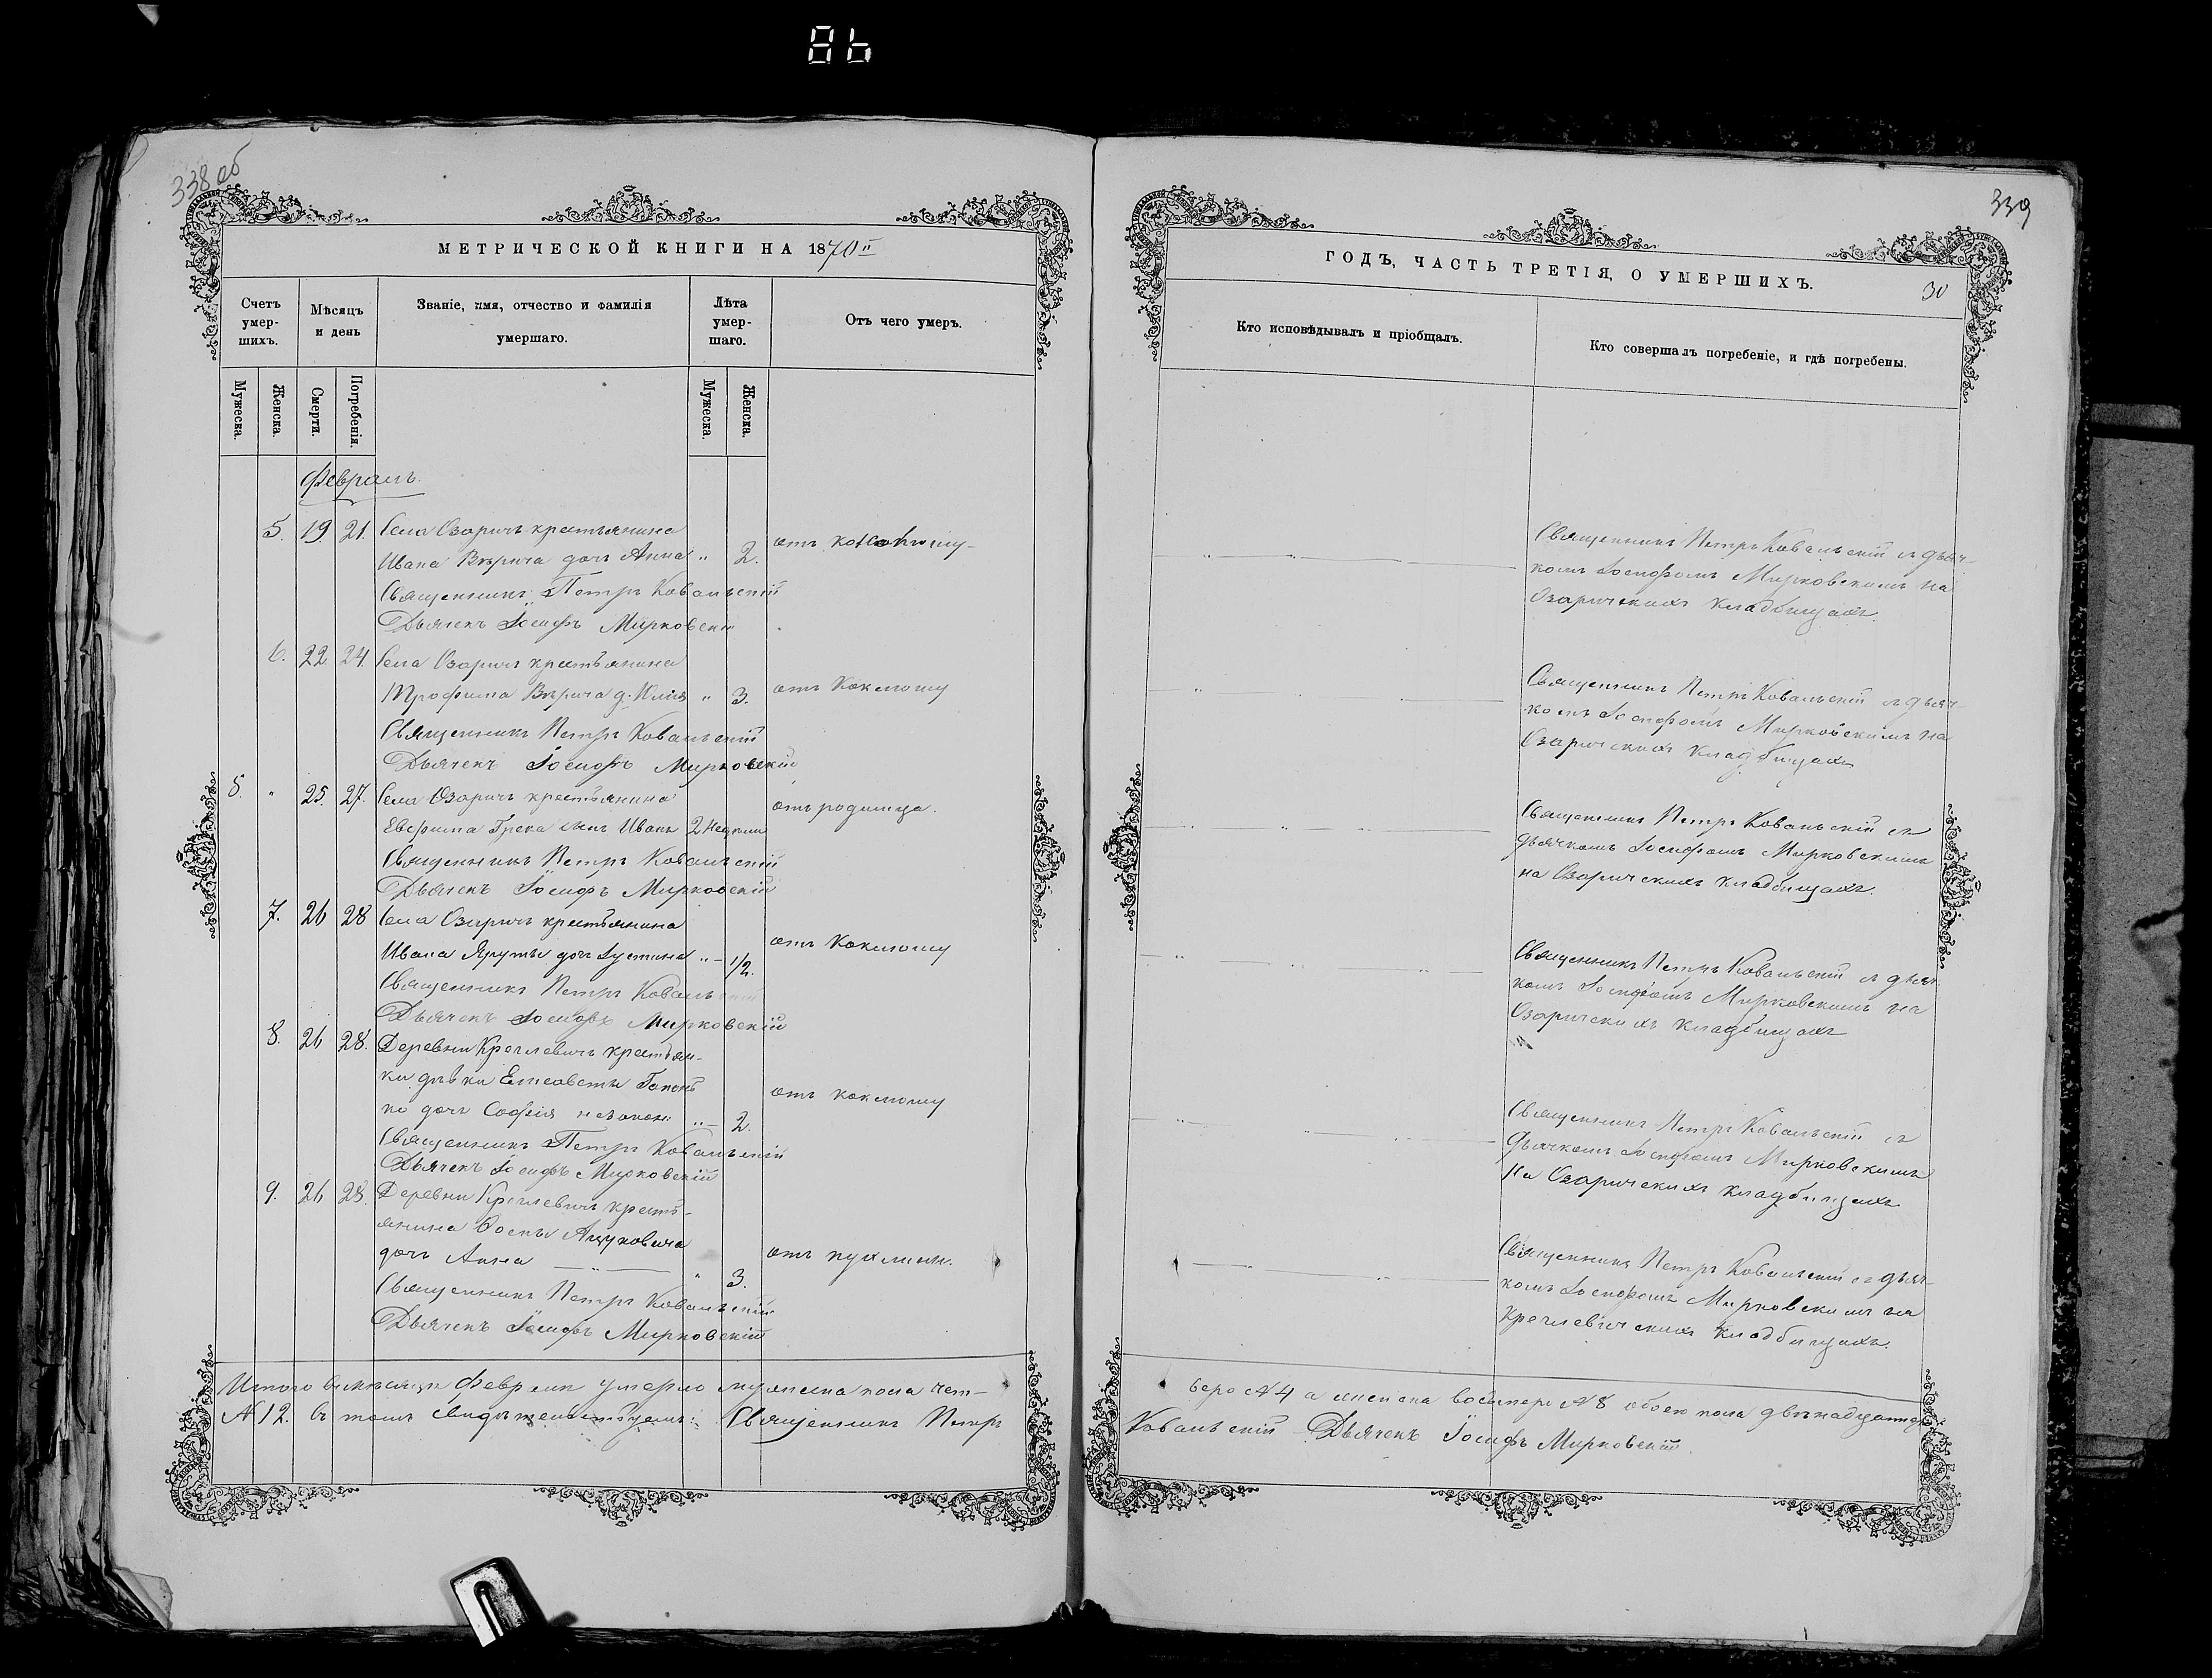 86
338 об
МЕТРИЧЕСКОЙ КНИГИ НА 1870й
Счетъ умер-шихъ.
Мѣсяцъ и день
Званіе, имя, отчество и фамилія умершаго.
Лѣта умер-шаго.
Отъ чего умеръ.
Мужеска.
Женска.
Смерти.
Погребенія.
Мужеска.
Женска.
Февраль
5. 19. 21. Села Озаричъ крестьянина
Ивана Вѣрича доч Анна " 2. отъ коклюшу
Священникъ Петръ Ковальскій
Дьячекъ Іосифъ Мирковскій
6. 22 24. Села Озаричъ крестьянина
Трофима Вѣрича д. Юлія " 3. отъ коклюшу
Священникъ Петръ Ковальскій
Дьячекъ Іосифъ Мирковскій
5. " 25. 27. Села Озаричъ крестьянина отъ родимца.
Евфима Грека сынъ Иванъ 2 недѣли
Священникъ Петръ Ковальскій
Дьячекъ Іосифъ Мирковскій
7. 26 28 Села Озаричъ крестьянина
Ивана Яруты доч Іустина " 1/2. отъ коклюшу
Священникъ Петръ Ковальскій
Дьячекъ Іосифъ Мирковскій
8. 26 28. Деревни Кречлевичъ крестьян-
ки дѣвки Елисаветы
ко доч Софія незакон. " 2. отъ коклюшу
Священникъ Петръ Ковальскій
Дьячекъ Іосифъ Мирковскій
9. 26 28. Деревни Кречлевичъ кресть-
янина Яцуковича
доч Анна " 3. отъ пухлин.
Священникъ Петръ Ковальскій
Дьячекъ Іосифъ Мирковскій
Итого въ мѣсяцѣ Февралѣ умерло мужеска пола чет-
N 12. въ томъ свидѣтельствуемъ: Священникъ Петръ
339
ГОДЪ, ЧАСТЬ ТРЕТІЯ, О УМЕРШИХЪ.
30
Кто исповѣдывалъ и пріобщалъ.
Кто совершалъ погребеніе, и гдѣ погребены.
Священникъ Петръ Ковальскій съ дьяч-
комъ Іосифомъ Мирковскимъ на
Озаричскихъ кладбищахъ.
Священникъ Петръ Ковальскій съ дьяч-
комъ Іосифомъ Мирковскимъ на
Озаричскихъ кладбищахъ
Священникъ Петръ Ковальскій съ
дьячкомъ Іосифомъ Мирковскимъ
на Озаричскихъ кладбищахъ.
Священникъ Петръ Ковальскій съ дьяч-
комъ Іосифомъ Мирковскимъ на
Озаричскихъ кладбищахъ
Священникъ Петръ Ковальскій съ
дьячкомъ Іосифомъ Мирковскимъ
на Озаричскихъ кладбищахъ
Священникъ Петръ Ковальскій съ дьяч-
комъ Іосифомъ Мирковскимъ на
Кречлевичскихъ кладбищахъ.
веро N 4 а женска восмеро N 8 обоего пола двѣнадцать
Ковальскій Дьячекъ Іосифъ Мирковскій.